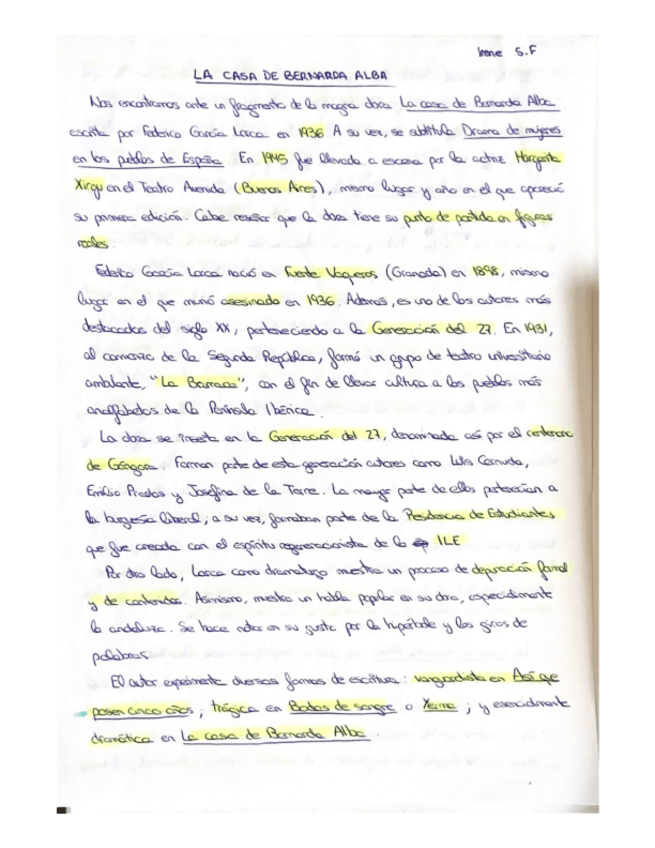 Irene S.F
LA CASA DE BERNARDA ALBA
Nos encontramos ante un fragmento de la magna obra La casa de Bernarda Alba
escrita por Federico García Lorca en 1936. A su vez, se subtitula Drama de mujeres
en los pueblos de España. En 1945 fue llevada a escena por la actriz Margarita
Xirgu en el Teatro Avenida (Buenos Aires), mismo lugar y año en el que apareció
su primera edición. Cabe reseñar que la obra tiene su punto de partida en figuras
reales.
Federico García Lorca nació en Fuente Vaqueros (Granada) en 1898, mismo
lugar en el que murió asesinado en 1936. Además, es uno de los autores más
destacados del siglo XX, perteneciendo a la Generación del 27. En 1931,
al comienzo de la Segunda República, formó un grupo de teatro universitario
ambulante, "La Barraca", con el fin de llevar cultura a los pueblos más
analfabetos de la Península Ibérica.
La obra se inserta en la Generación del 27, denominada así por el centenario
de Góngora. Forman parte de esta generación autores como Luis Cernuda,
Emilio Prados y Josefina de la Torre. La mayor parte de ellos pertenecían a
la burguesía liberal; a su vez, formaban parte de la Residencia de Estudiantes
que fue creada con el espíritu regeneracionista de la ILE
Por otro lado, Lorca como dramaturgo muestra un proceso de depuración formal
y de contenidos. Asimismo, muestra un habla popular en su obra, especialmente
la andaluza. Se hace notar en su gusto por la hipérbole y los giros de
palabras.
El autor experimenta diversas formas de escritura: vanguardista en Así que
pasen cinco años; trágica en Bodas de sangre o Yerma; y esencialmente
dramática en La casa de Bernarda Alba